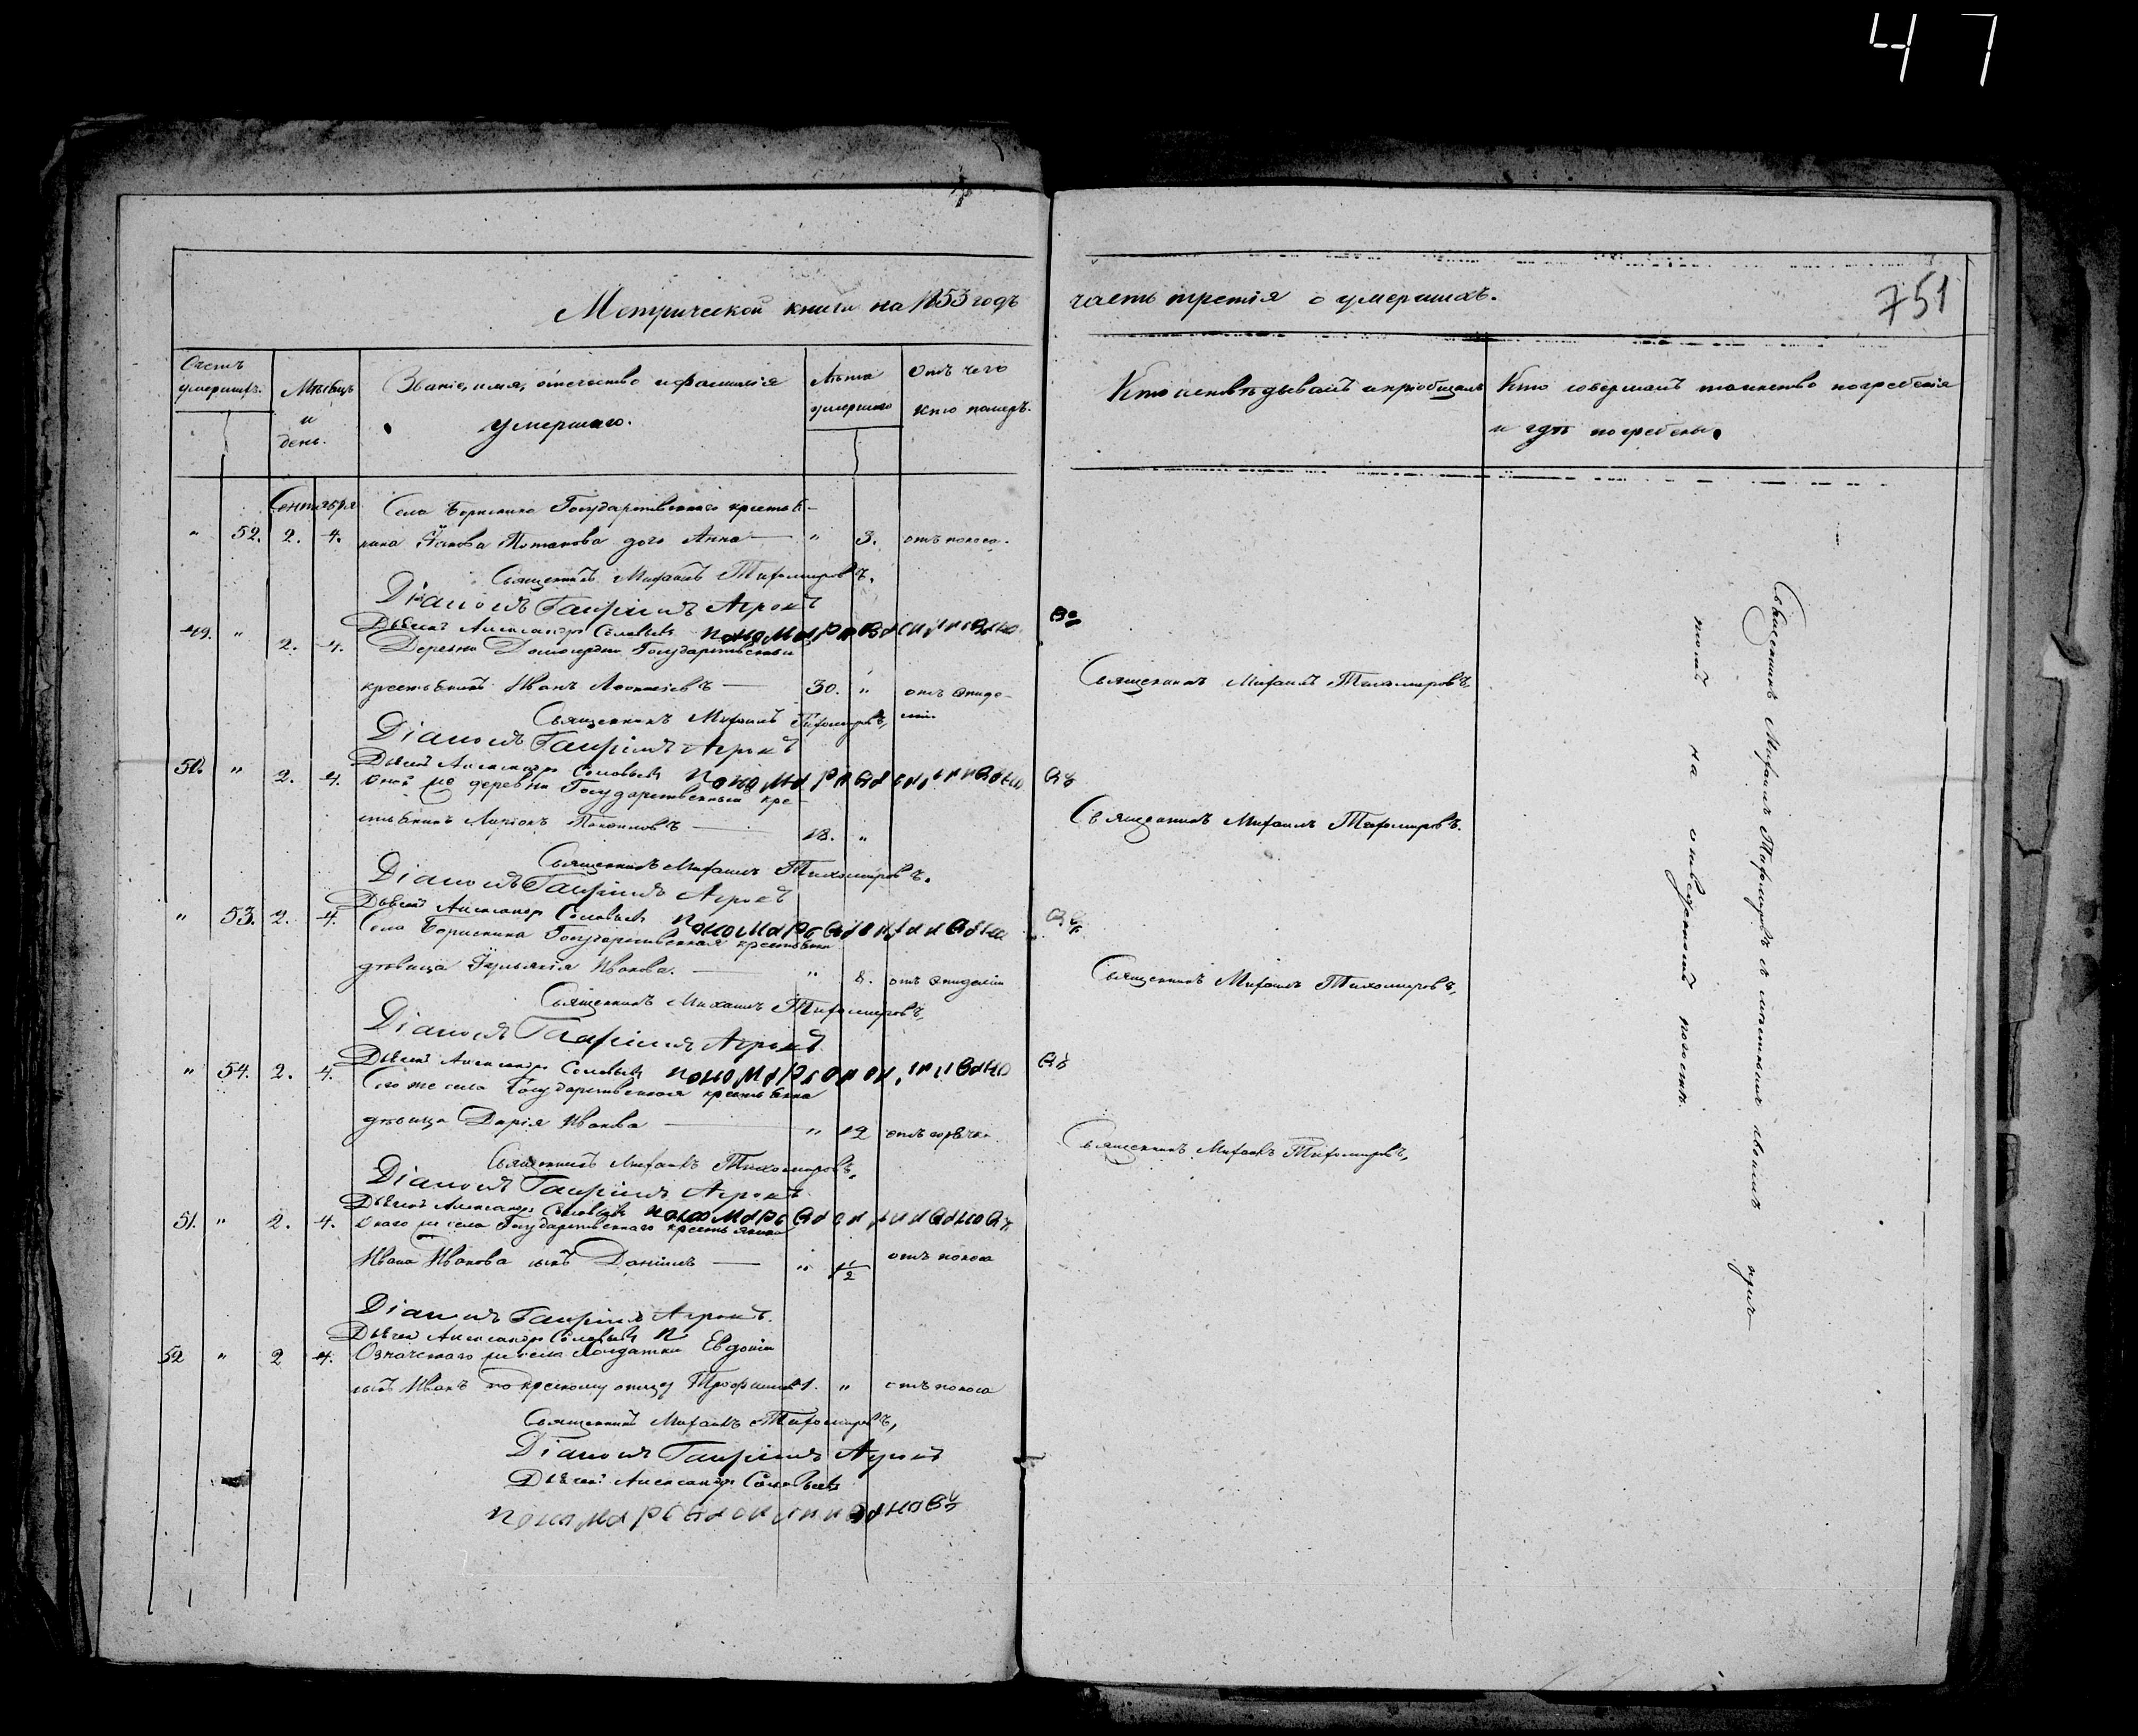 47
751
Метрической книги на 1853 годъ часть третія о умершихъ.
Счетъ умершихъ.
Мѣсяцъ и день.
Званіе, имя, отечество и фамилія умершаго.
Лѣта умершаго
Отъ чего кто померъ.
Кто исповѣдывалъ и пріобщалъ
Кто совершалъ таинство погребенія и гдѣ погребены.
Сентября
Села Борискина Государственнаго крестья-
" 52. 2. 4. нина Якова Потапова дочь Анна " 3. отъ поноса.
Священникъ Михаилъ Тихомировъ.
Діаконъ Гавріилъ
Дьячекъ Александръ Соловьевъ пономарь
49. " 2. 4. Деревни Государственный
крестьянинъ Иванъ 30. " отъ эпиде-
міи
Священникъ Михаилъ Тихомировъ,
Священникъ Михаилъ Тихомировъ,
Діаконъ Гавріилъ
Дьячекъ Александръ Соловьевъ пономарь
50. " 2. 4. Оной же деревни Государственный кре-
стьянинъ 18. "
Священникъ Михаилъ Тихомировъ.
Священникъ Михаилъ Тихомировъ.
Діаконъ Гавріилъ
Дьячекъ Александръ Соловьевъ пономарь
" 53. 2. 4. Села Борискина Государственная крестьянка
дѣвица Іуліанія Иванова. " 8. отъ эпидеміи
Священникъ Михаилъ Тихомировъ,
Священникъ Михаилъ Тихомировъ,
Діаконъ Гавріилъ
Дьячекъ Александръ Соловьевъ пономарь
" 54. 2. 4. Сего же села Государственная крестьянка
дѣвица Дарія Иванова " 12 отъ горячки
Священникъ Михаилъ Тихомировъ,
Священникъ Михаилъ Тихомировъ,
Діаконъ Гавріилъ
Дьячекъ Александръ Соловьевъ пономарь
51. " 2. 4. Онаго же села Государственнаго крестьянина
Ивана Иванова сынъ Даніилъ " 1/2 отъ поноса
Діаконъ Гавріилъ
Дьячекъ Александръ Соловьевъ
52 " 2 4. Означеннаго же села солдатки Евдокіи
сынъ Иванъ по крестному отцу 1. " отъ поноса
Священникъ Михаилъ Тихомировъ,
Діаконъ Гавріилъ
Дьячекъ Александръ Соловьевъ
пономарь
Священникъ Михаилъ Тихомировъ съ мѣстнымъ своимъ прич-
томъ на отведенномъ погостѣ.